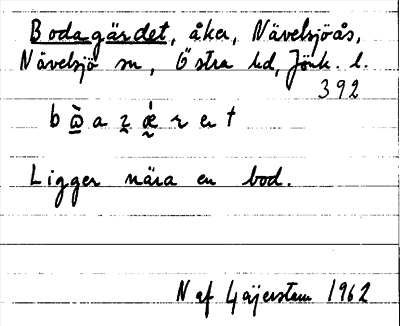 Bodagärdet, åker, Nävelsjöås,
Nävelsjö sn, Östra hd, Jönk. l.
392
Ligger nära en bod.
N af 1962